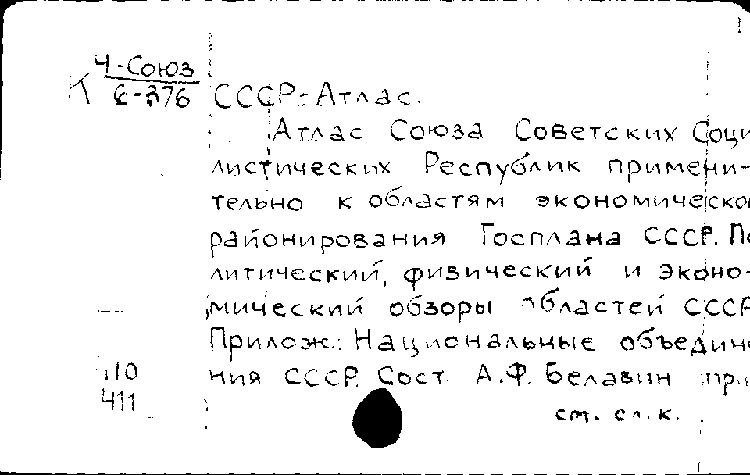 Ч-Союз
С-376
СССР: Атлас.
Атлас Союза Советских Соци
листических Республик примени-
тельно к областям экономическо
районирования Госплана СССР. По
литический, физический и эконо-
мический обзоры областей СССР
Прилож.: Национальные объедине
ния СССР. Сост. А.Ф. Белавин при
110
411
см. сл. к.